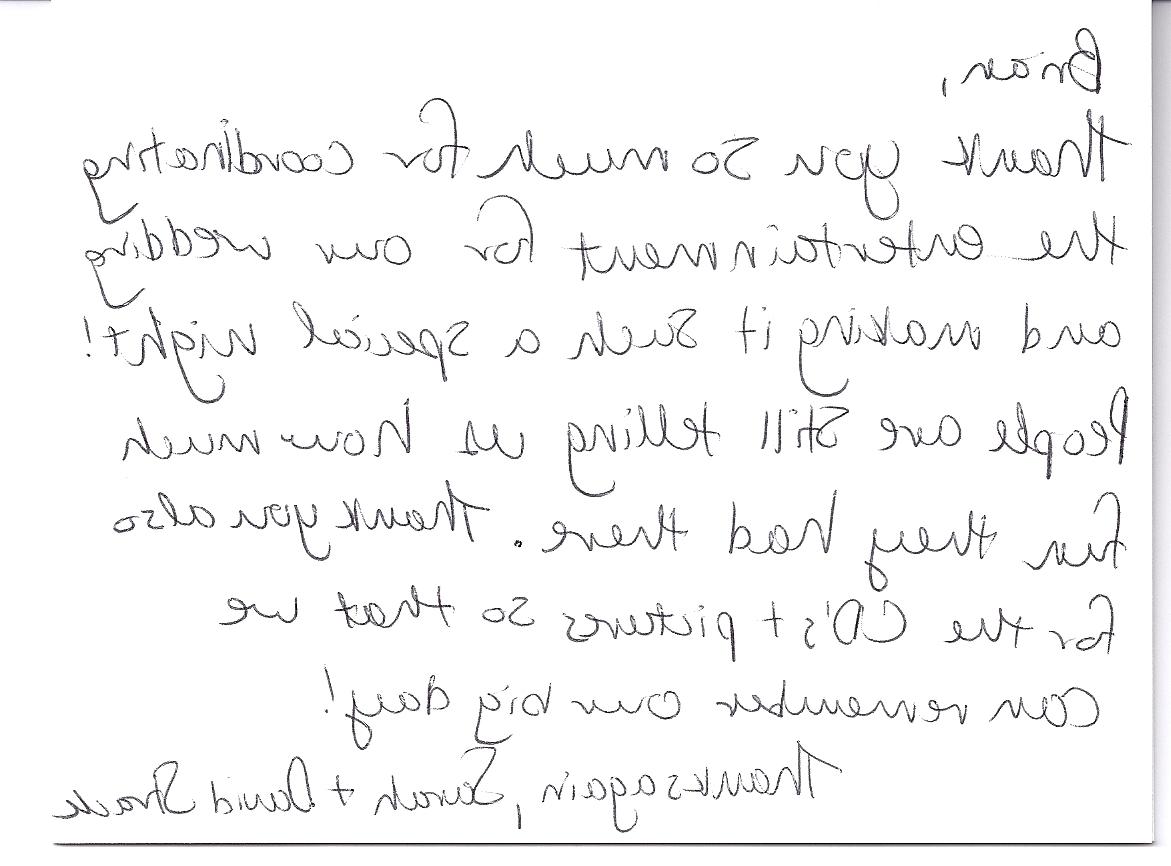 Brian,
Thank you so much for coordinating
the entertainment for our wedding
and making it such a special night!
People are still telling us how much
fun they had there. Thank you also
for the CD's + pictures so that we
can remember our big day!
Thanks again, Sarah + David